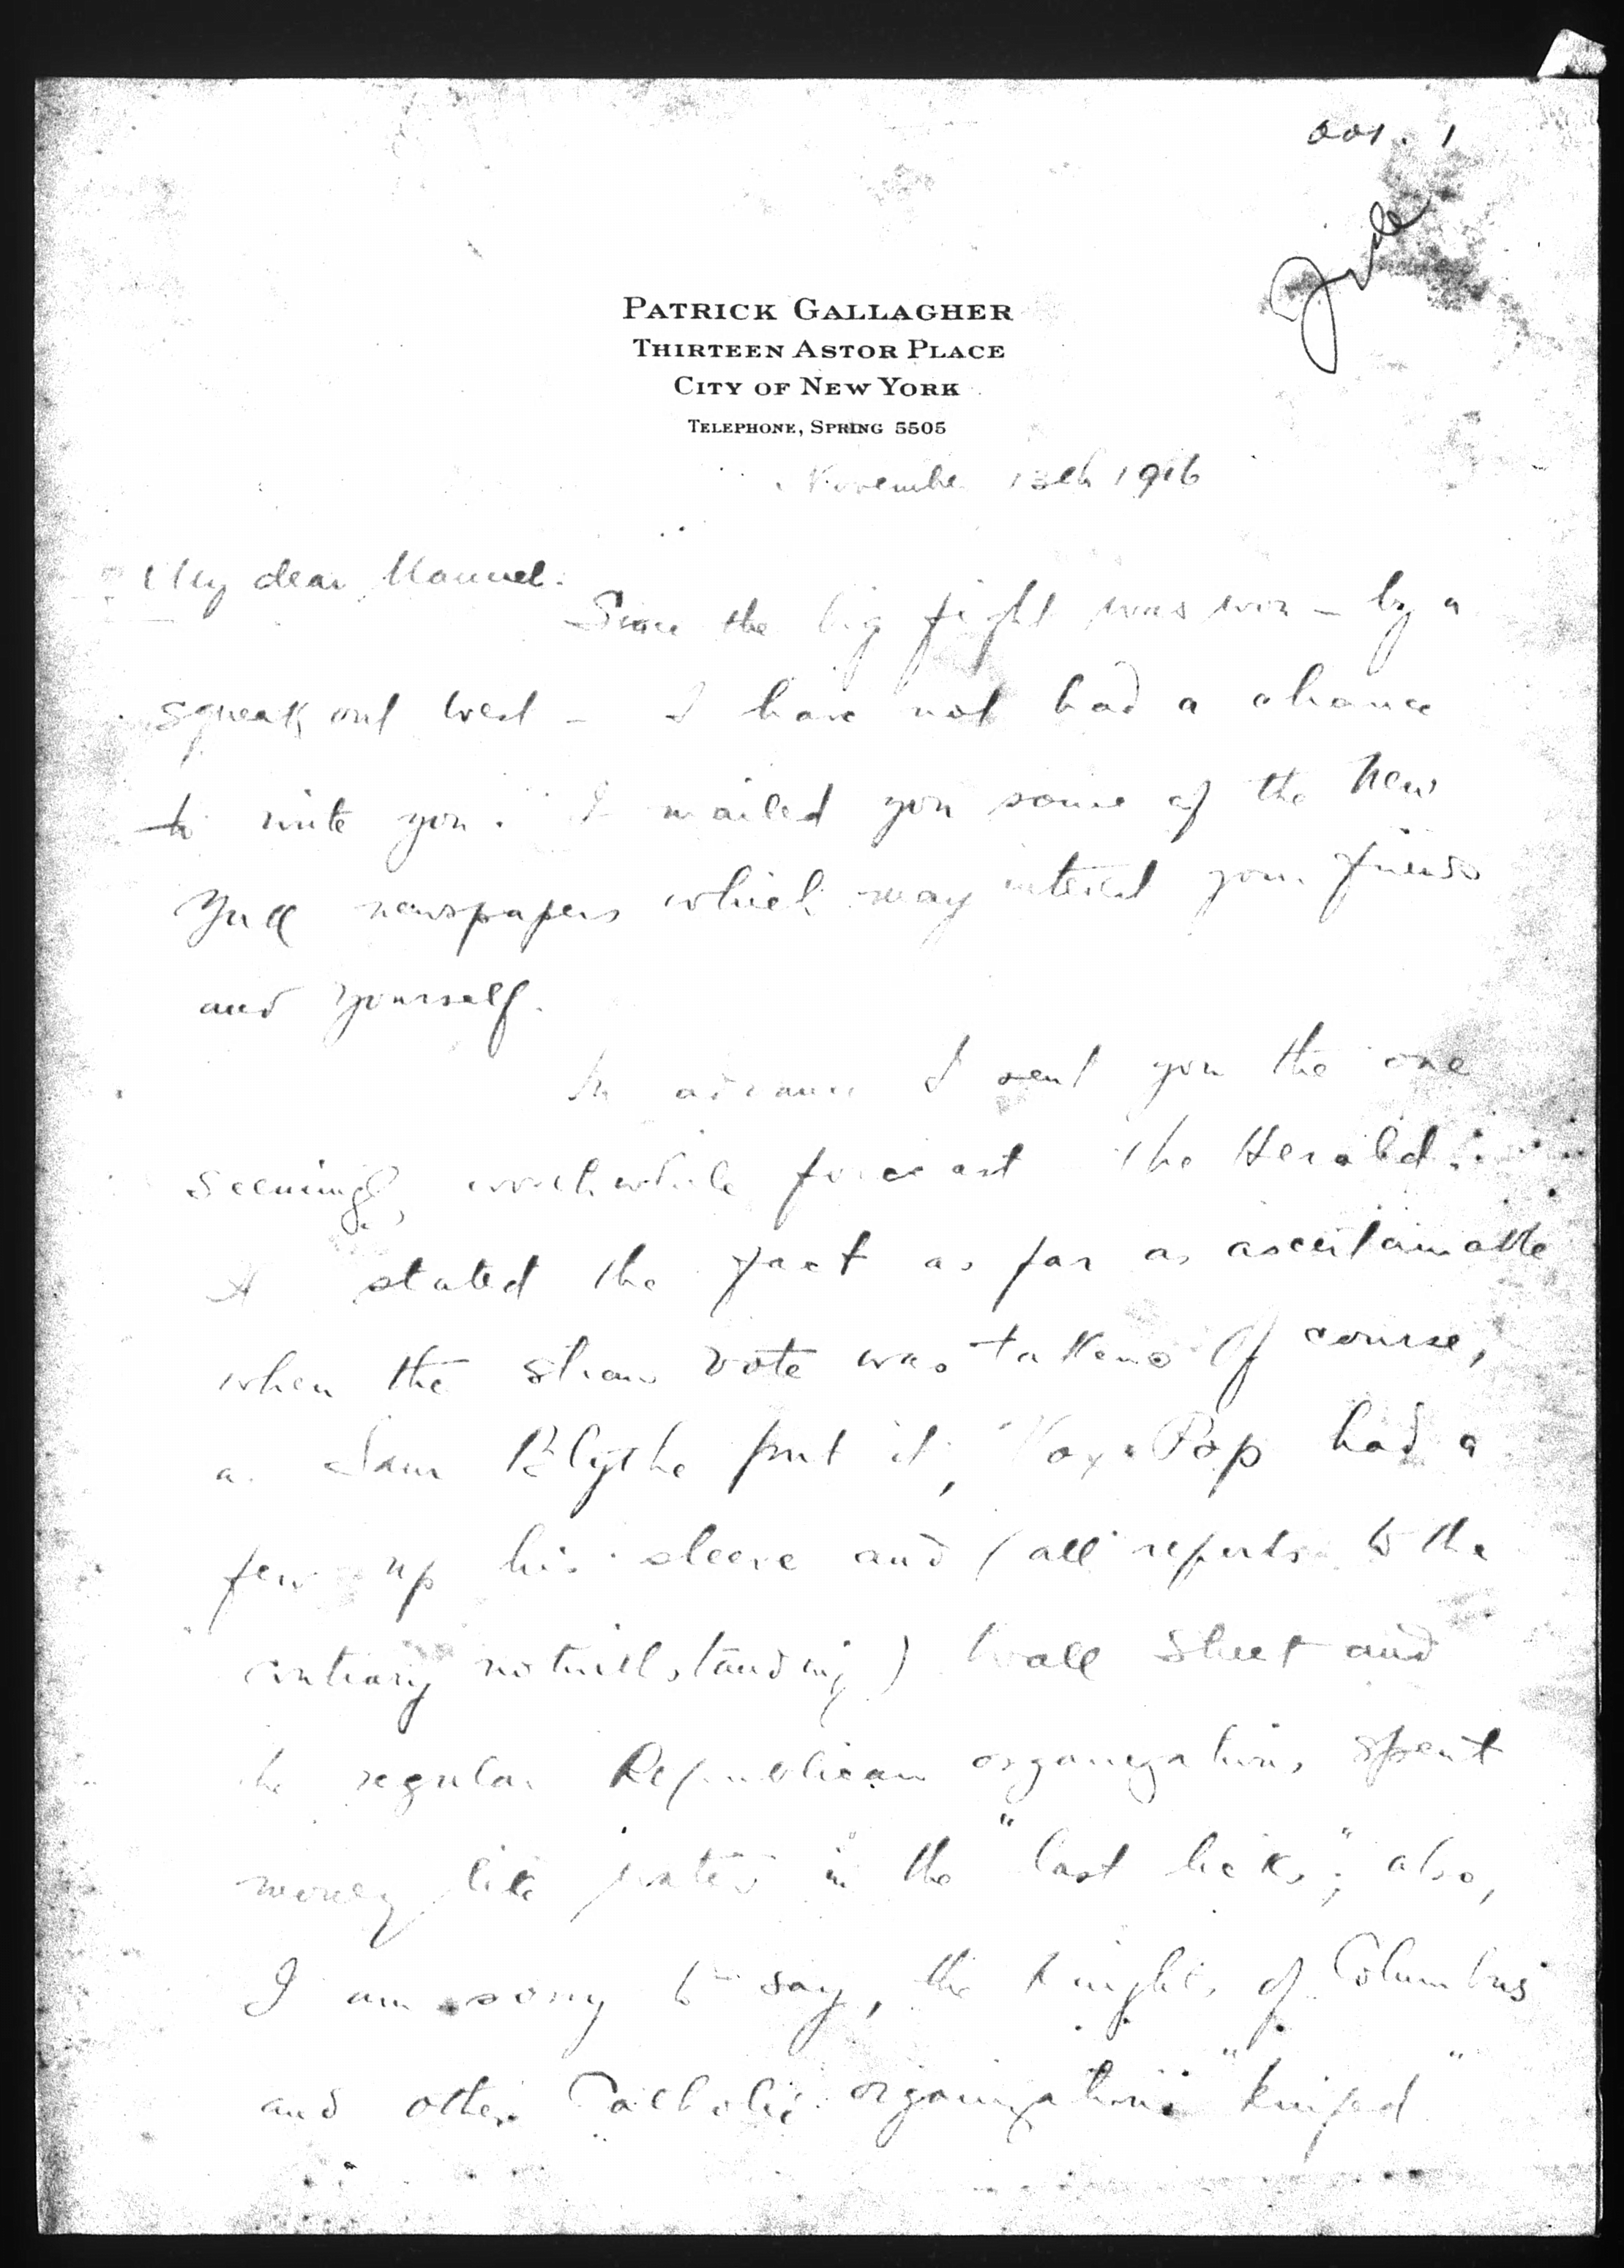 PATRICK GALLAGHER
THIRTEEN ASTOR PLACE
CITY OF NEW YORK
TELEPHONE, SPRING 5505
November 13th 1916
My dear Manuel:
Since the big fight was won – by a
squeak out west – I have not had a chance
to write you. I mailed you some of the New
York newspapers which may interest your friends
and yourself.
In advance I sent you the one
seemingly worthwhile forecast the Herald.
It stated the fact as far as ascertainable
when the straw vote was taken. Of course,
as Sam Blythe put it, Vox Pop had a
few up his sleeve and (all reports to the
contrary notwithstanding) Wall Street and
the regular Republican organizations spent
money like water in the "last licks"; also,
I am sorry to say, the Knights of Columbus
and other Catholic organizations "knifed"